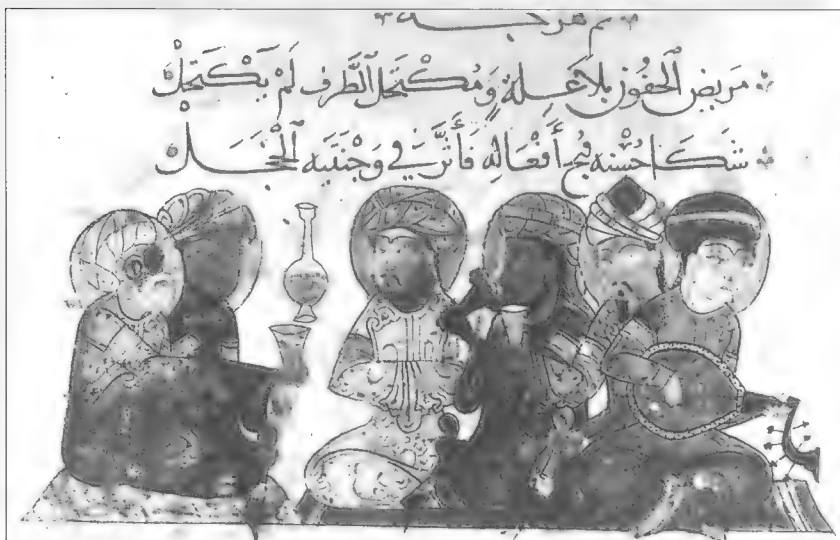 مَريض الجفُون بلا عِلة وَمُكْتحل الطَّرف لَمْ يَكْتَحِلْ
شكَا حُسْنه قُبح أفعَاله فَأثّر في وَجْنَتيه الخَجَلْ